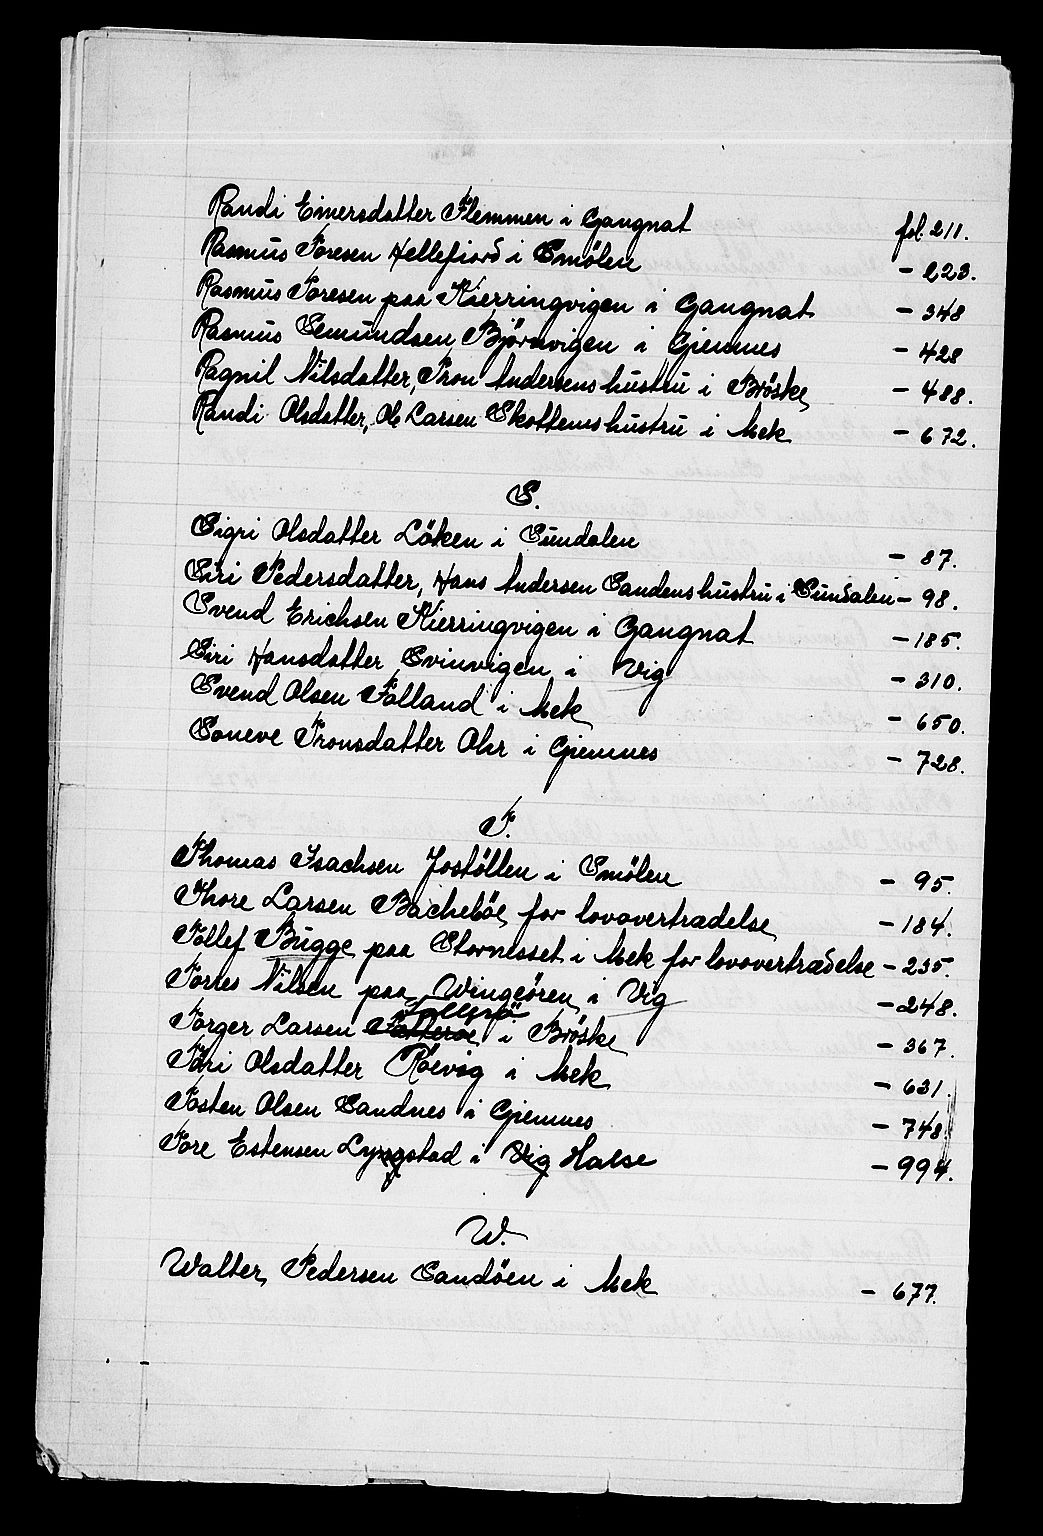 Randi Einersdatter Flemmen i Gangnat fol. 211.
Rasmus Toresen Hellefiord i Smølen - 223.
Rasmus Toresen paa Kierringvigen i Gangnat - 348
Rasmus Semundsen Bjørnvigen i Gjemnes - 428
Ragnil Nilsdatter, Tron Andersens hustru i Brøske - 488.
Randi Olsdatter, Ole Larsen Skottems hustru i Mek - 672.
S.
Sigri Olsdatter Løken i Sundalen - 87.
Siri Pedersdatter, Hans Andersen Sandens hustru i Sundalen - 98.
Svend Erichsen Kierringvigen i Gangnat - 185.
Siri Hansdatter Svinvigen i Vig - 310.
Svend Olsen Folland i Mek - 650.
Soneve Tronsdatter Ohr i Gjemnes - 728.
T.
Thomas Isachsen Jostøllen i Smølen - 95.
Thore Larsen Bachebøe for lovovertrædelse - 184.
Tollef Bugge paa Stornesset i Mek for lovovertrædelse - 235.
Torres Nilsen paa Wingeøren i Vig - 248.
Torger Larsen i Brøske - 367.
Tøri Olsdatter Røevig i Mek - 631.
Tosten Olsen Sandnes i Gjemnes - 748.
Tore Estensen Lyngstad i Vig Halse - 994.
W.
Walter Pedersen Sandøen i Mek - 677.